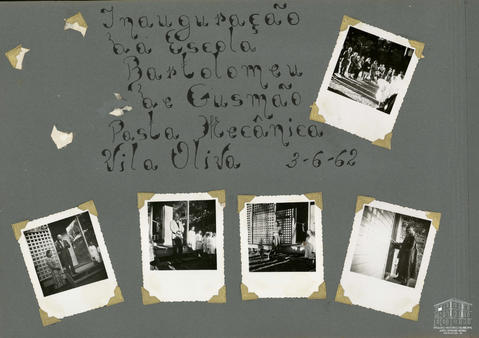 Inauguração
da Escola
Bartolomeu
de Gusmão
Pasta Mecânica
Vila Oliva 3-6-62